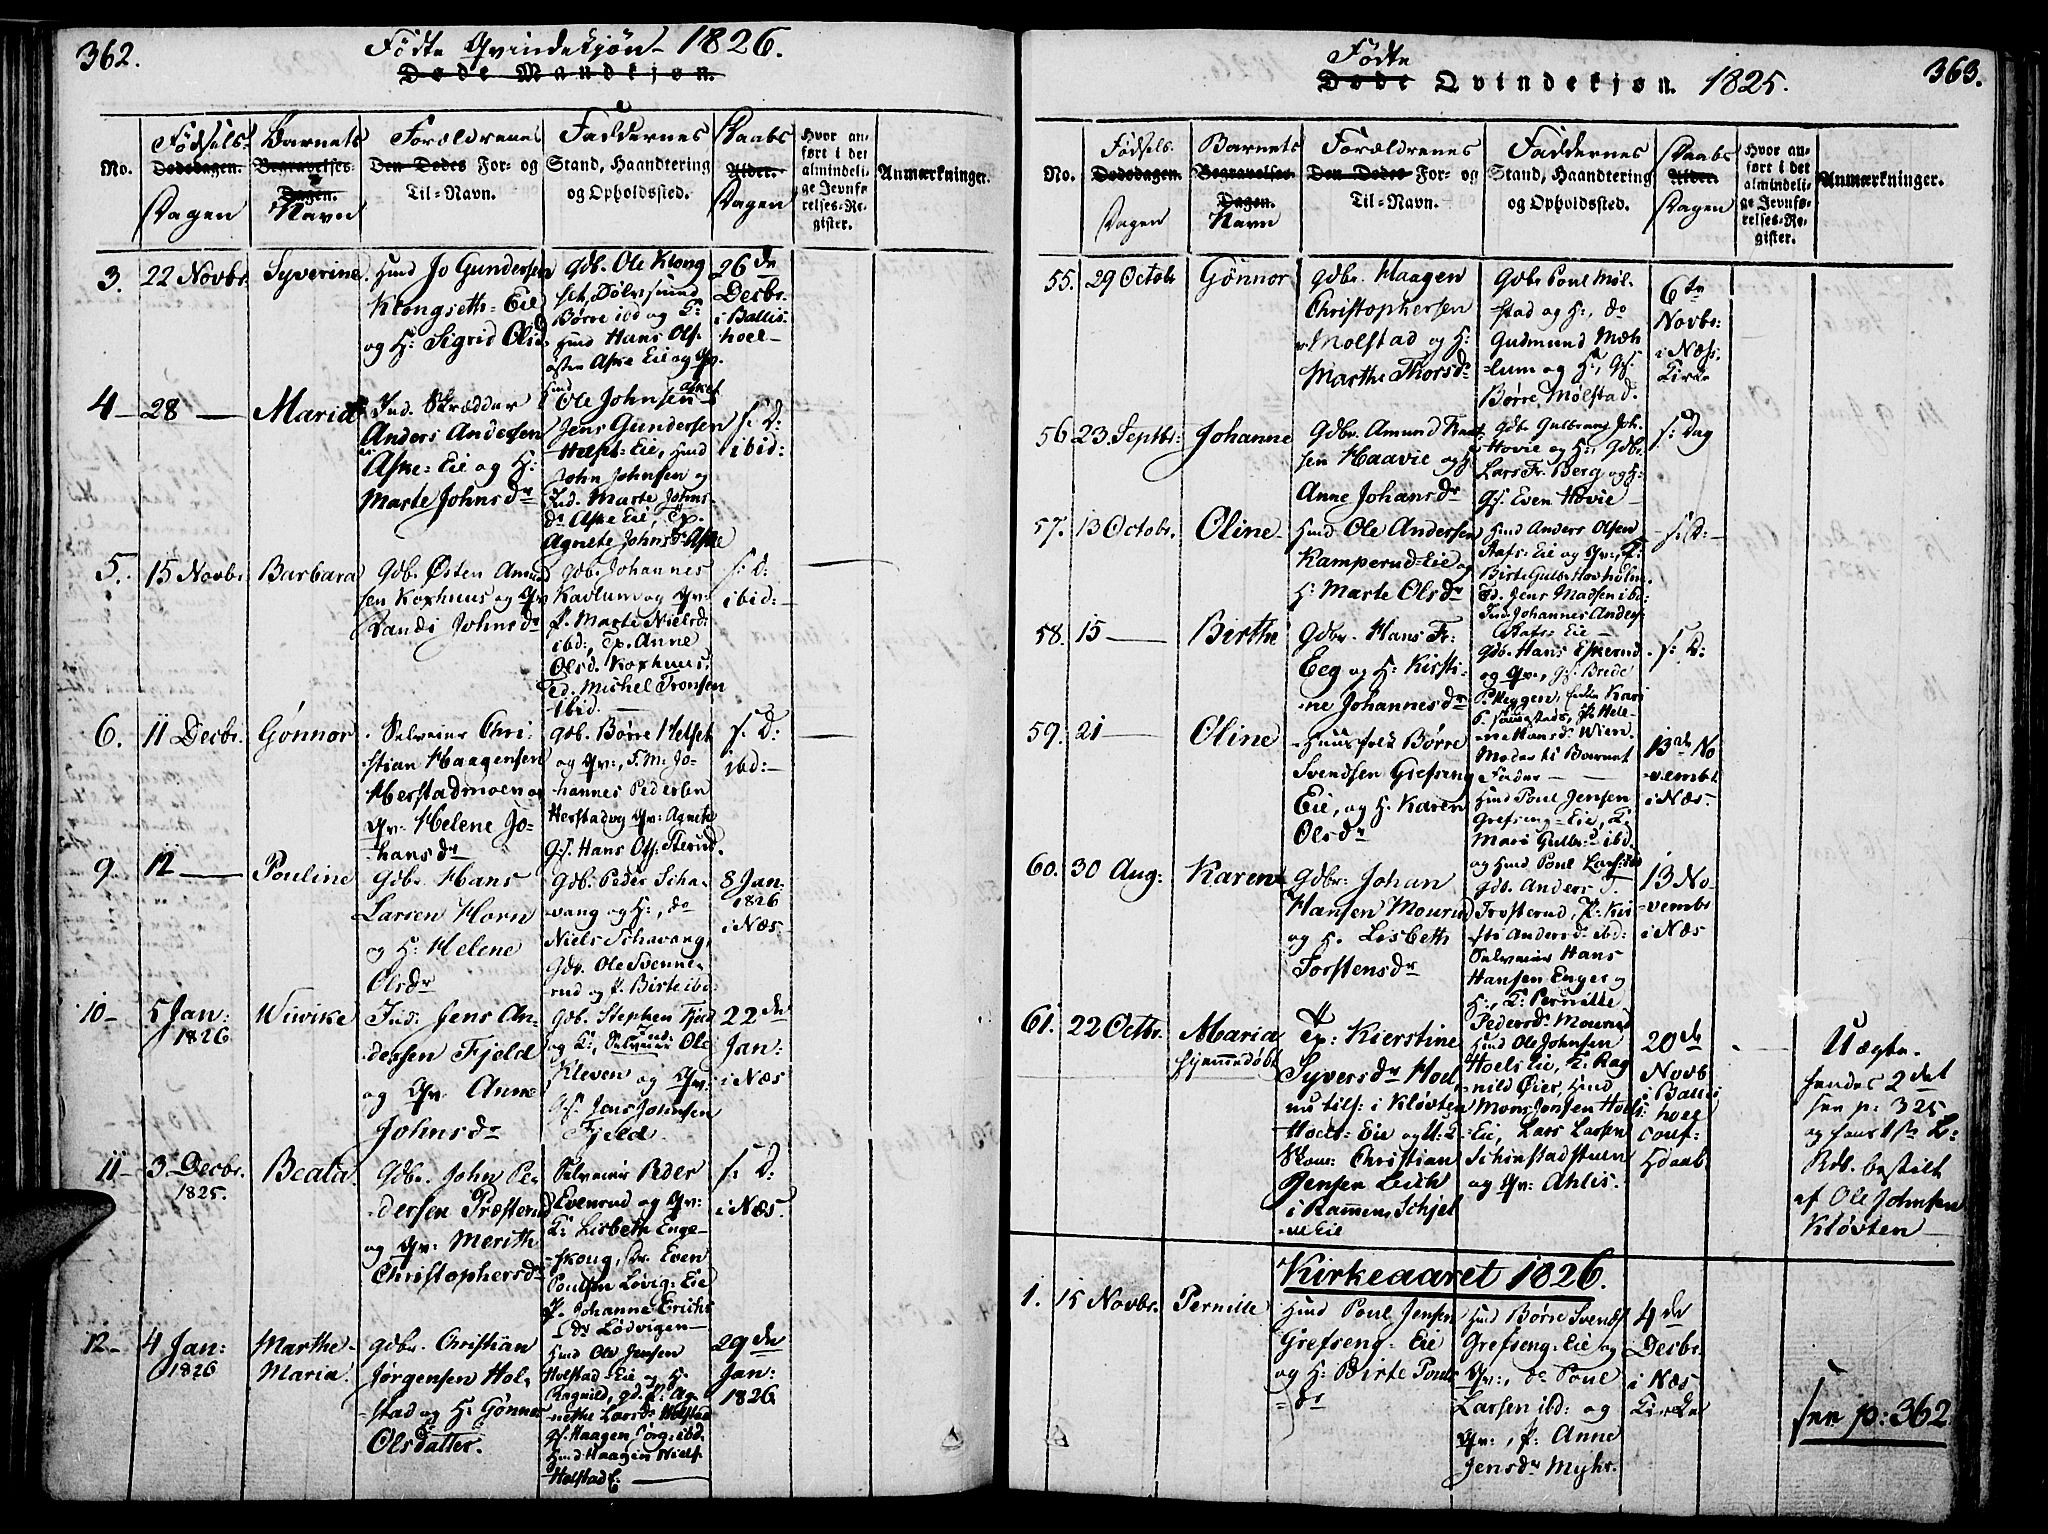 362.
Fødte Qvindekjøn 1826.
Døde Mandkjøn.
No.
Fødsels-
Dødsdagen.
Dagen
Barnets
Begravelses-
Dagen.
Navn
Forældrenes
Den Dødes For- og
Til-Navn.
Faddernes
Stand, Haandtering
og Opholdssted.
Daabs
Alder.
Dagen
Hvor an-
ført i det
almindeli-
ge Jevnfø-
relses-Re-
gister.
Anmærkninger.
3.
22 Novbr.
Syverine.
Huusmd Jo Gundersen
Klongseth-Eie
og H: Sigrid Olsd.
Gdb. Ole Klong
set, Dølisund
Børre ibd og K:
Huusmd Hans Ols.
østen Aske Eie og Qv.
26de
Decbr.
i Ballis-
hoel-
4-
28 -
Maria
Ind. Skrædder
Anders Andersen
Aske-Eie og H:
Marte Johnsdr
Ole Johnsen Asket
Jens Gundersen
Helset-Eie, Huusmd
John Johnsen og
Ind. Marte Johns-
dr Aske Eie, Tp.
Agnete Johnsdr Aske
s: D:
ibid:
5.
15 Novbr
Barbara
Gdb. Østen Amund
sen Koxhuus og Qv
Randi Johnsdr
Gdb. Johannes
Kavlum og Qv:
P. Marte Nielsd:
ibd:, Tp. Anne
Olsd. Koxhuus,
Ted. Michel Tronsen
ibid.
s: D:
ibid:-
6.
11 Decbr.
Gønnor
Selveier Chri-
stian Haagensen
Herstadmoen og
Qv: Helene Jo-
hansdr
Gdb. Børre Helset
og Qv:, F.M: Jo-
hannes Pedersen
Herstad og Qv: Agnete
Gs. Hans Ols: Sterud.
s: D:
ibd:-
9.
12 -
Pouline
Gdbr. Hans
Larsen Horn
og H: Helene
Olsdr
Gdb. Peder Scha-
vang og H:, do
Niels Schavang,
Gdb. Ole Svenne-
rud og P. Birte ibd:
8 Jan:
1826
i Næs.
10-
5 Jan:
1826
Wivike
Ind: Jens An-
dersen Fjeld
og Qv. Anne
Johnsdr
Gdb. Stephen Fjeld
og K:, Selveier Ind: Ole
Kleven og Qv:
Gs. Jens Johnsen
Fjeld.
22de
Jan:
i Næs
11-
3 Decbr.
1825.
Beata.
Gdb. John Pe-
dersen Præsterud
og Qv: Merith
Christophersdr
Selveier Peder
Evenrud og Qv:
K: Lisbeth Enge-
skoug, Dr. Even
Poulsen Løvig: Eie
P. Johanne Erichs
dr Lødvigen-
s: D:
i Næs.
12-
4 Jan:
1826
Marthe
Maria.
Gdbr. Christian
Jørgensen Hol-
stad og H: Gønner
Olsdatter.
Huusmd Ole Jensen
Holstad-Eie og H:
Ragnild, gd. P: Ag-
nethe Larsdr Holstad
Gs. Haagen Jørg: ibd.
Huusmd: Haagen Niels.
Holstad E.
29de
Jan:
1826
363.
Fødte
Døde Qvindekjøn. 1825.
No.
Fødsels-
Dødsdagen.
Dagen
Barnets
Begravelses-
Dagen.
Navn
Forældrenes
Den Dødes For- og
Til-Navn.
Faddernes
Stand, Haandtering
og Opholdssted.
Daabs
Alder.
Dagen
Hvor an-
ført i det
almindeli-
ge Jevnfø-
relses-Re-
gister.
Anmærkninger.
55.
29 Octobr
Gønnor
Gdbr. Haagen
Christophersen
Molstad og H:
Marthe Thorsdr
Gdbr Poul Møl-
stad og H:, do
Gudmund Mæh-
lum og H:, Gs.
Børre Mølstad.
6te
Novbr:
i Næs.
Kirke
56
23 Septbr:
Johanne
Gdbr. Amund Knut
sen Haavie og H
Anne Johansdr
Gdbr Gulbrand Joh.
Hovie og H:, Gdbr.
Lars Fr. Berg og H:
Gs. Even Hovie
s: Dag
57.
13 Octobr.
Oline
Huusmd Ole Andersen
Kamperud-Eie og
H: Marte Olsdr
Huusmd Anders Olsen
Rafs-Eie og Qv:, K:
Birte Gulbr. Hovholm,
Ted. Jens Madsen ibd:
Ind. Johannes Anders.
Rafs-Eie-
s: D:-
58.
15 -
Birthe
Gdbr. Hans Fr:
Eeg og H: Kirsti-
ne Johannesdr
Gdb. Hans Eskerud
og Qv:, Gs. Brede
P. Heggen, Enke Kari
P. Saugstad, P. Hele-
ne Hansdr Wien
Moder til Barnet
Fader-
s: D:
59.
21 -
Oline
Huusfolk Børre
Svendsen Grefseng
Eie, og H. Karen
Olsdr
Huusmd Poul Jensen
Grefseng-Eie, K:
Mari Gulbr:dr ibd.
og Huusmd Poul Lars: ibd
13de No-
vembr.
i Næs.
60.
30 Aug:
Karen
Gdbr. Johan
Hansen Mourud
og H. Lisbeth
Torstensdr
Gdb. Anders T.
Trosterud, P: Kir-
sti Andersdr ibd:
Selveier Hans
Hansen Enger og
H:, K: Pernille
Pedersdr Mourud
13 No-
vembr
i Næs
61.
22 Octbr.
Maria
hjemmedøbt
Tp: Kierstine
Syversdr Hoel
nu tils: i Kløvten
Hoels-Eie og U: K:
Skom: Christian
Jensen Leich
i Rammen, Schjel
-ve Eie
Huusmd Ole Johnsen
Hoels Eie, K: Rag
nild Øier, Huusmd
Mons Jensen Hoels-
Eie, Lars Larsen
Schinstadstuen
og Qv: Ahlis.
20de
Novb
i Ballis-
hoel
conf-
Hdaab.
Uægte.
hendes 2det
see p: 325
og hans 1ste L:
Rdb. bestilt
af Ole Johnsen
Kløvten
Kirkeaaret 1826.
1.
15 Novbr.
Pernille
Huusmd Poul Jensen
Grefseng-Eie
og H: Birte Pouls
dr
Huusmd Børre Svends.
Grefseng-Eie og
Qv:, do Poul
Larsen ibd: og
Qv:, P: Anne
Jensdr Myhr.
4de
Decbr.
i Næs
Kirke
see p: 362